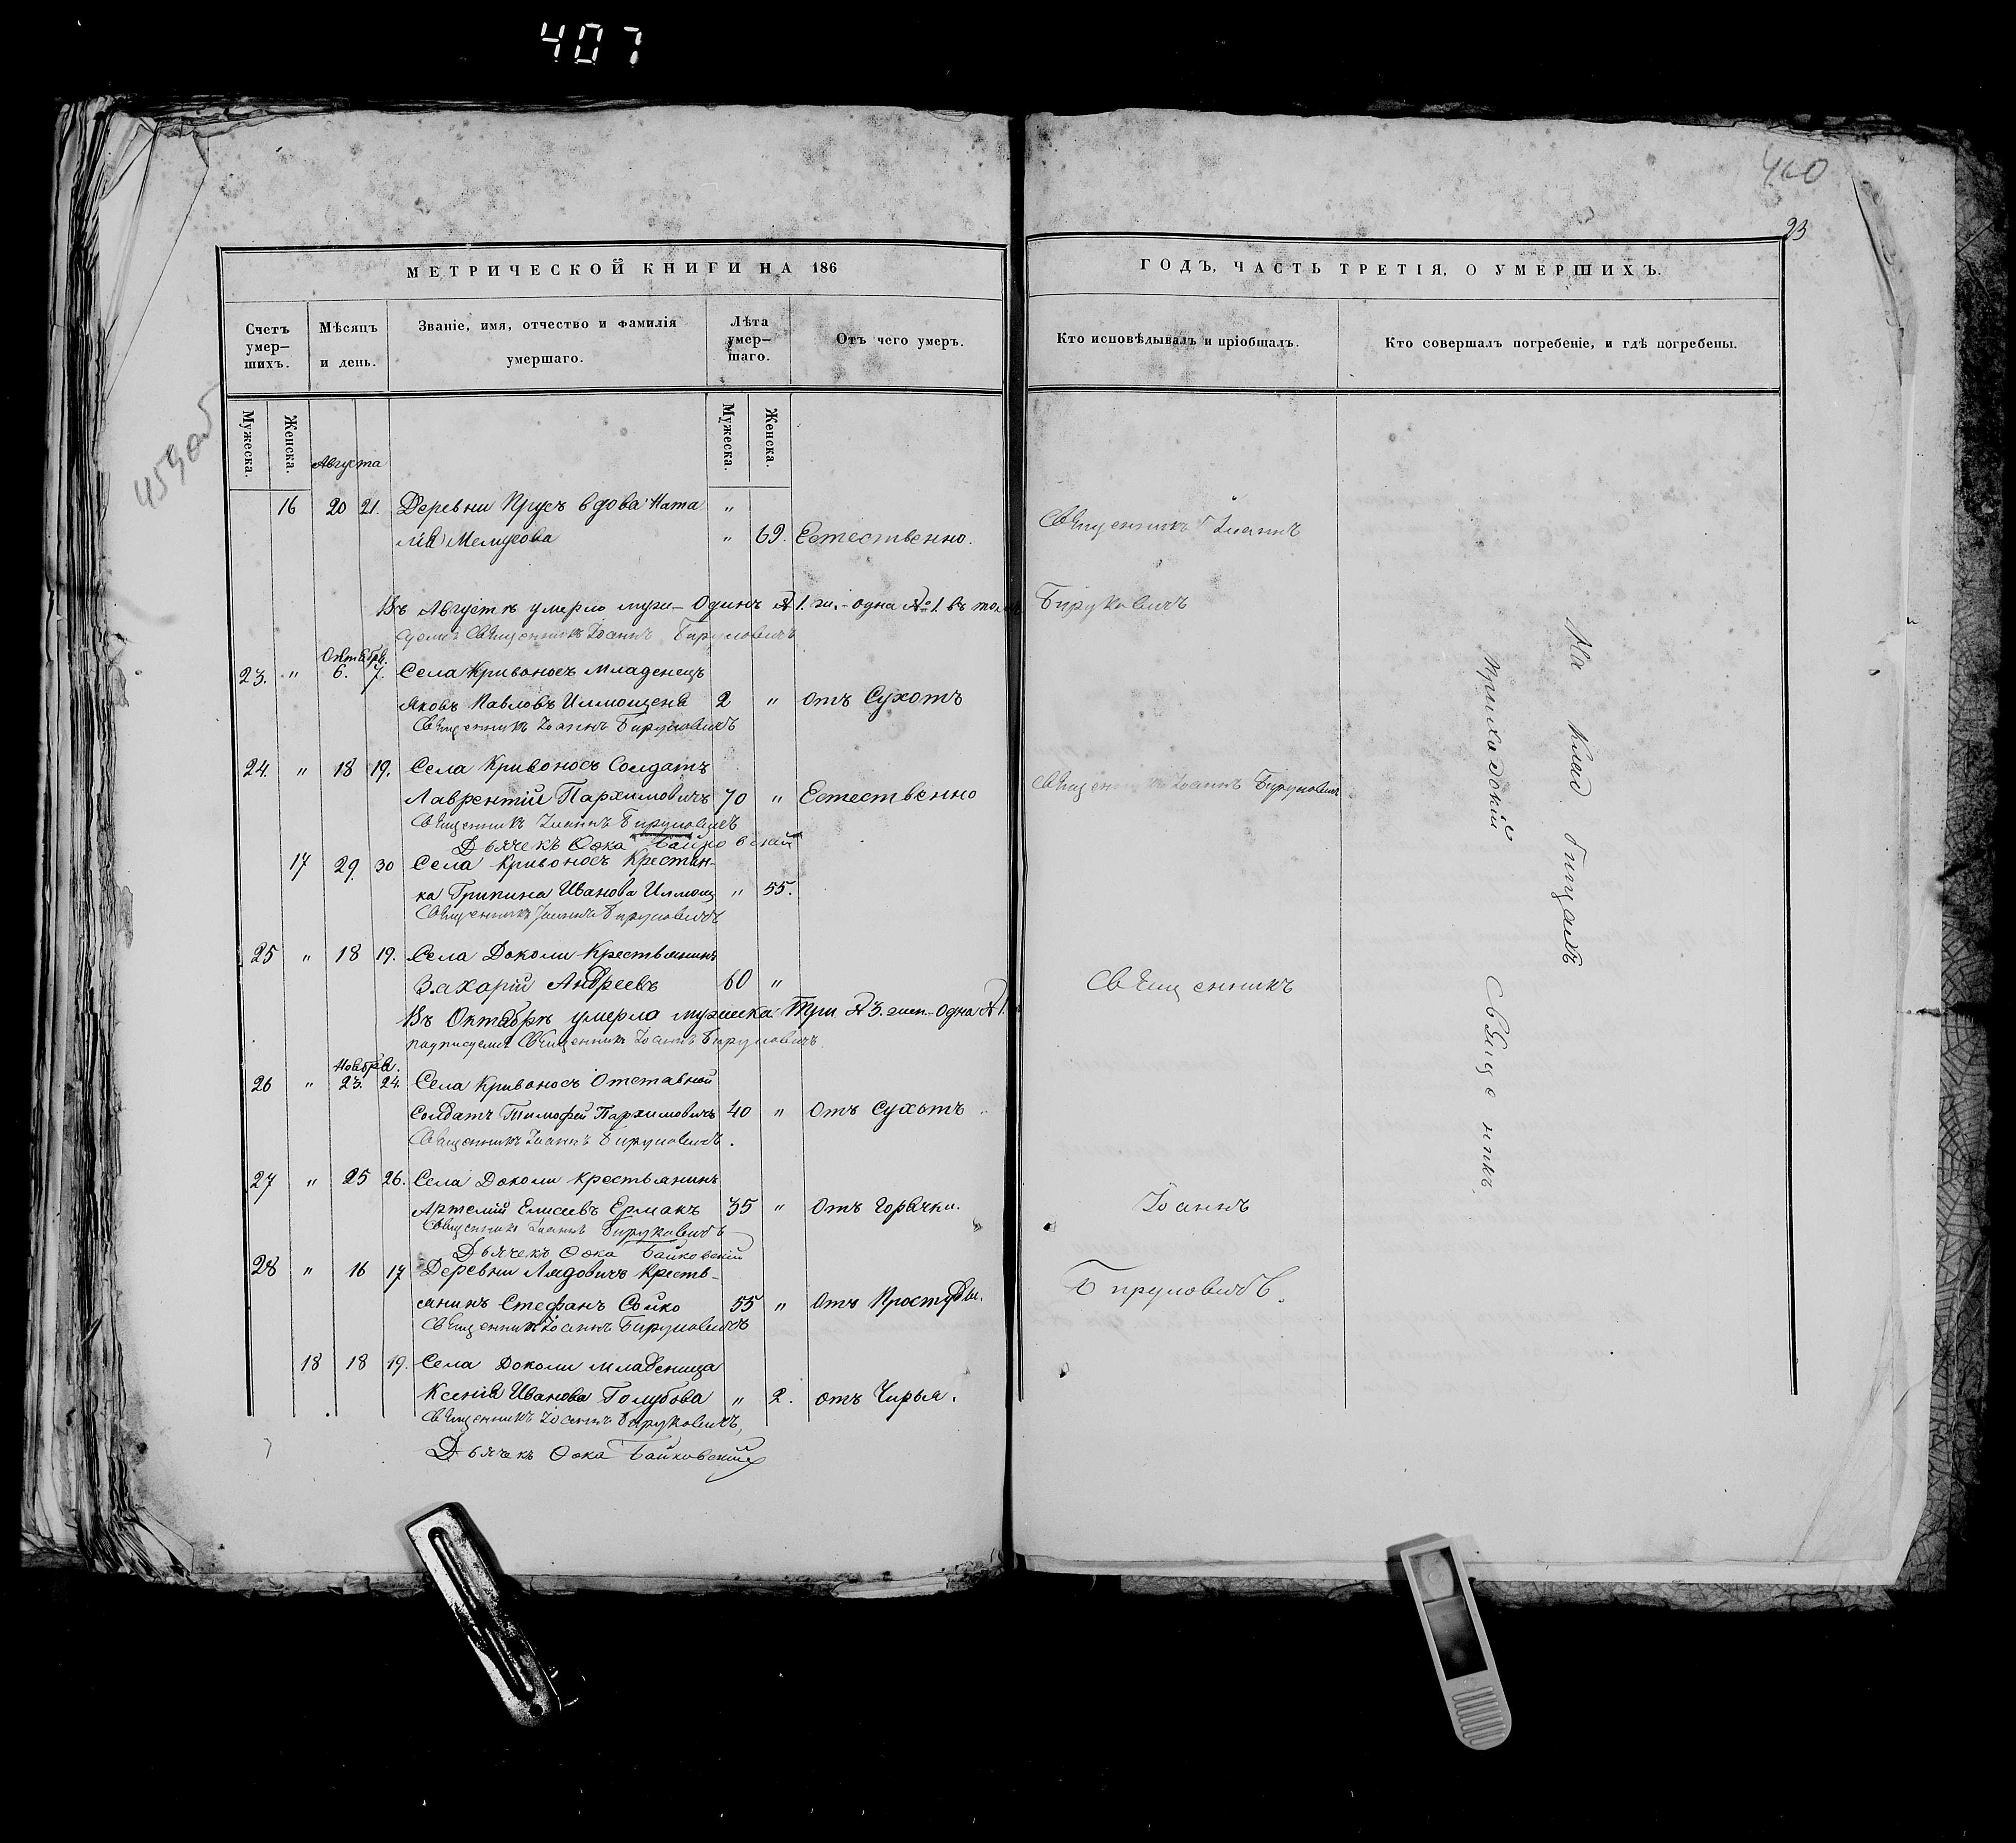 407
460
23
453об
МЕТРИЧЕСКОЙ КНИГИ НА 186
ГОДЪ, ЧАСТЬ ТРЕТІЯ, О УМЕРШИХЪ.
Счетъ умер—шихъ.
Мѣсяцъ и день.
Званіе, имя, отчество и фамилія умершаго.
Лѣта умер—шаго.
Отъ чего умеръ.
Кто исповѣдывалъ и пріобщалъ.
Кто совершалъ погребеніе, и гдѣ погребены.
Мужеска. Женска. Мужеска. Женска.
Августа
16 20 21. Деревни Прусъ вдова Ната „
лія „ 69. Естественно.
Въ Августѣ умерло муж— Одинъ №1. ж.— одна №1. въ томъ
Священникъ Іоаннъ Бируковичъ
Октября.
23. „ 6. 7. Села Кривоносъ Младенецъ
Яковъ Павловъ 2 „ отъ Сухотъ
Священникъ Іоаннъ Бируковичъ
24. „ 18 19. Села Кривоносъ Солдатъ
Лаврентій Пархимовичъ 70 „ Естественно
Священникъ Іоаннъ Бируковичъ
Дьячекъ Ѳока Байковскій
17 29. 30 Села Кривоносъ Крестян-
ка Грипина Иванова „ 55.
Священникъ Іоаннъ Бируковичъ
25 „ 18 19. Села Доколи Крестьянинъ
Захарій Андреевъ 60 „
Въ Октябрѣ умерло мужеска Три №3. жен.— Одна №1.
подписуемся Священникъ Іоаннъ Бируковичъ
Ноября.
26 „ 23. 24. Села Кривоносъ Отставной
Солдатъ Тимофей Пархимовичъ 40 „ Отъ Сухотъ
Священникъ Іоаннъ Бируковичъ.
27 „ 25 26. Села Доколи Крестьянинъ
Артемій Елисеевъ Ермакъ 35 „ Отъ Горячки.
Священникъ Іоаннъ Бируковичъ
Дьячекъ Ѳока Байковскій
28 „ 16 17 Деревни Лядовичъ Кресть-
янинъ Стефанъ Сойко 55 „ Отъ Простуды.
Священникъ Іоаннъ Бируковичъ
18 18 19. Села Доколи младеница
Ксенія Иванова Голубова „ 2. отъ Чирья.
Священникъ Іоаннъ Бируковичъ,
Дьячекъ Ѳока Байковскій
Священникъ Іоаннъ
Бируковичъ
Священникъ Іоаннъ Бируковичъ
Священникъ
Іоаннъ
Бируковичъ.
На кладбищахъ
Приходскій Священникъ